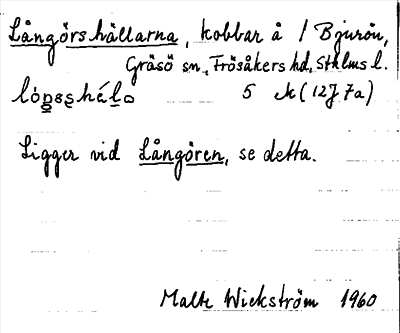 Långörshällarna, kobbar å / Bjurön,
Gräsö sn, Frösåkers hd, Sthlms l.
5 ek (12J 7a)
Ligger vid Långören, se detta.
Malte Wickström 1960